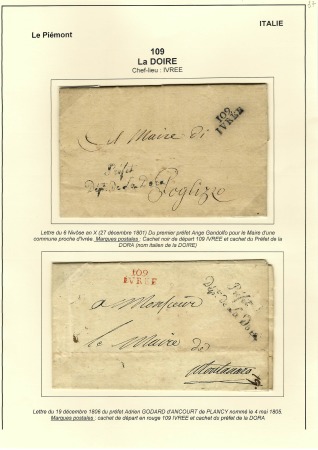 37
ITALIE
Le Piémont
109
La DOIRE
Chef-lieu : IVREE
109
IVRÉE
Al Maire di
Préfet
Dépt. de La Dora
Foglizzo
Lettre du 6 Nivôse an X (27 décembre 1801) Du premier préfet Ange Gandolfo pour le Maire d'une
commune proche d'Ivrée. Marques postales : Cachet noir de départ 109 IVREE et cachet du Préfet de la
DORA (nom italien de la DOIRE)
109
IVREE
Préfet
Dépt. de La Dora
a Monsieur
le Maire de
Montanaro
Lettre du 19 décembre 1806 du préfet Adrien GODARD d'ANCOURT de PLANCY nommé le 4 mai 1805.
Marques postales : cachet de départ en rouge 109 IVREE et cachet du préfet de la DORA